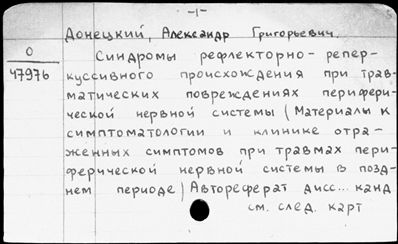 -1-
Донецкий, Александр Григорьевич.
О
47976
Синдромы рефлекторно-репер-
куссивного происхождения при трав-
матических повреждениях перифери-
ческой нервной системы (Материалы к
симптоматологии и клинике отра-
женных симптомов при травмах пери-
ферической нервной системы в позд-
нем периоде) Автореферат дисс... канд
см. след. карт